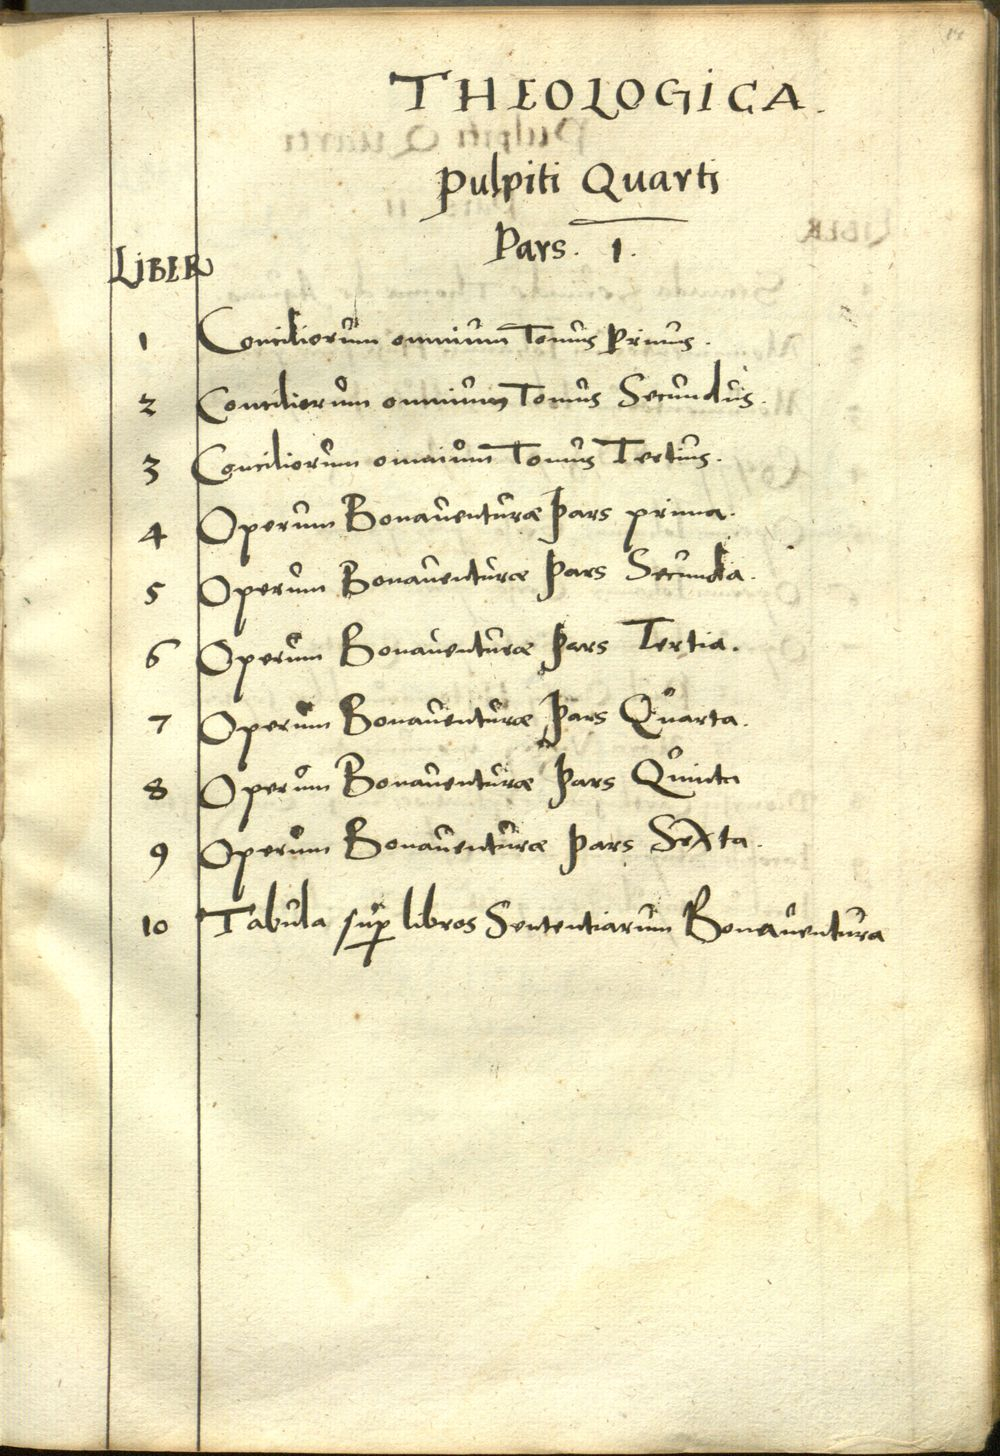 THEOLOGICA.
Pulpiti Quarti
Pars. 1.
LIBER
1 Conciliorum omnium Tomus Primus.
2 Conciliorum omnium Tomus Secundus.
3 Conciliorum omnium Tomus Tertius.
4 Operum Bonauenturæ Pars prima.
5 Operum Bonauenturæ Pars Secunda.
6 Operum Bonauenturæ Pars Tertia.
7 Operum Bonauenturæ Pars Quarta.
8 Operum Bonauenturæ Pars Quinta
9 Operum Bonauenturæ Pars Sexta.
10 Tabula sup libros Sententiarum Bonauentura